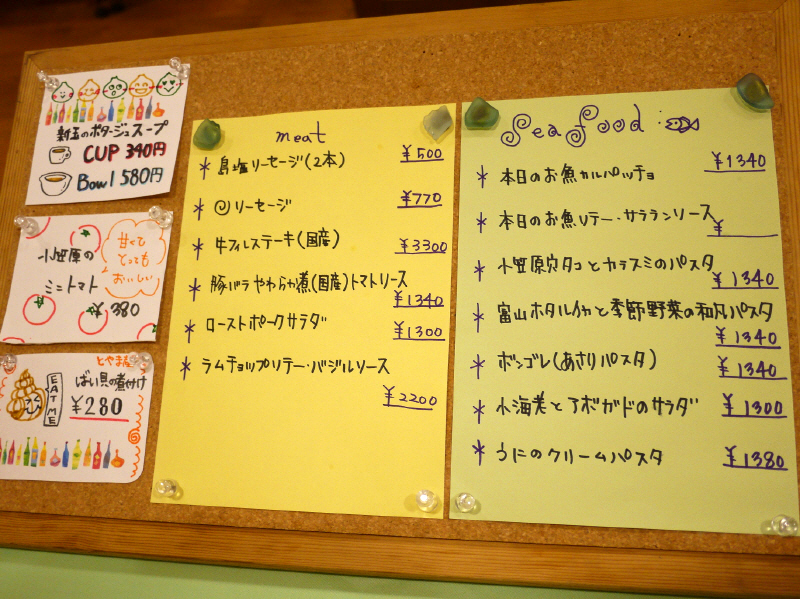 新玉のポタージュスープ
CUP 340円
Bowl 580円
小笠原の
ミニトマト
¥380
甘くて
とっても
おいしい
とやま産
ばい貝の煮付け
¥280
EAT ME
meat
* 島塩ソーセージ(2本) ¥500
* ソーセージ ¥770
* 牛フィレステーキ(国産) ¥3300
* 豚バラやわらか煮(国産)トマトソース
¥1340
* ローストポークサラダ ¥1300
* ラムチョップソテー・バジルソース
¥2200
Sea Food
* 本日のお魚カルパッチョ ¥1340
* 本日のお魚ソテー・サラランソース
¥
* 小笠原穴タコとカラスミのパスタ
¥1340
* 富山ホタルイカと季節野菜の和風パスタ
¥1340
* ボンゴレ(あさりパスタ) ¥1340
* 小海老とアボガドのサラダ ¥1300
* うにのクリームパスタ ¥1380